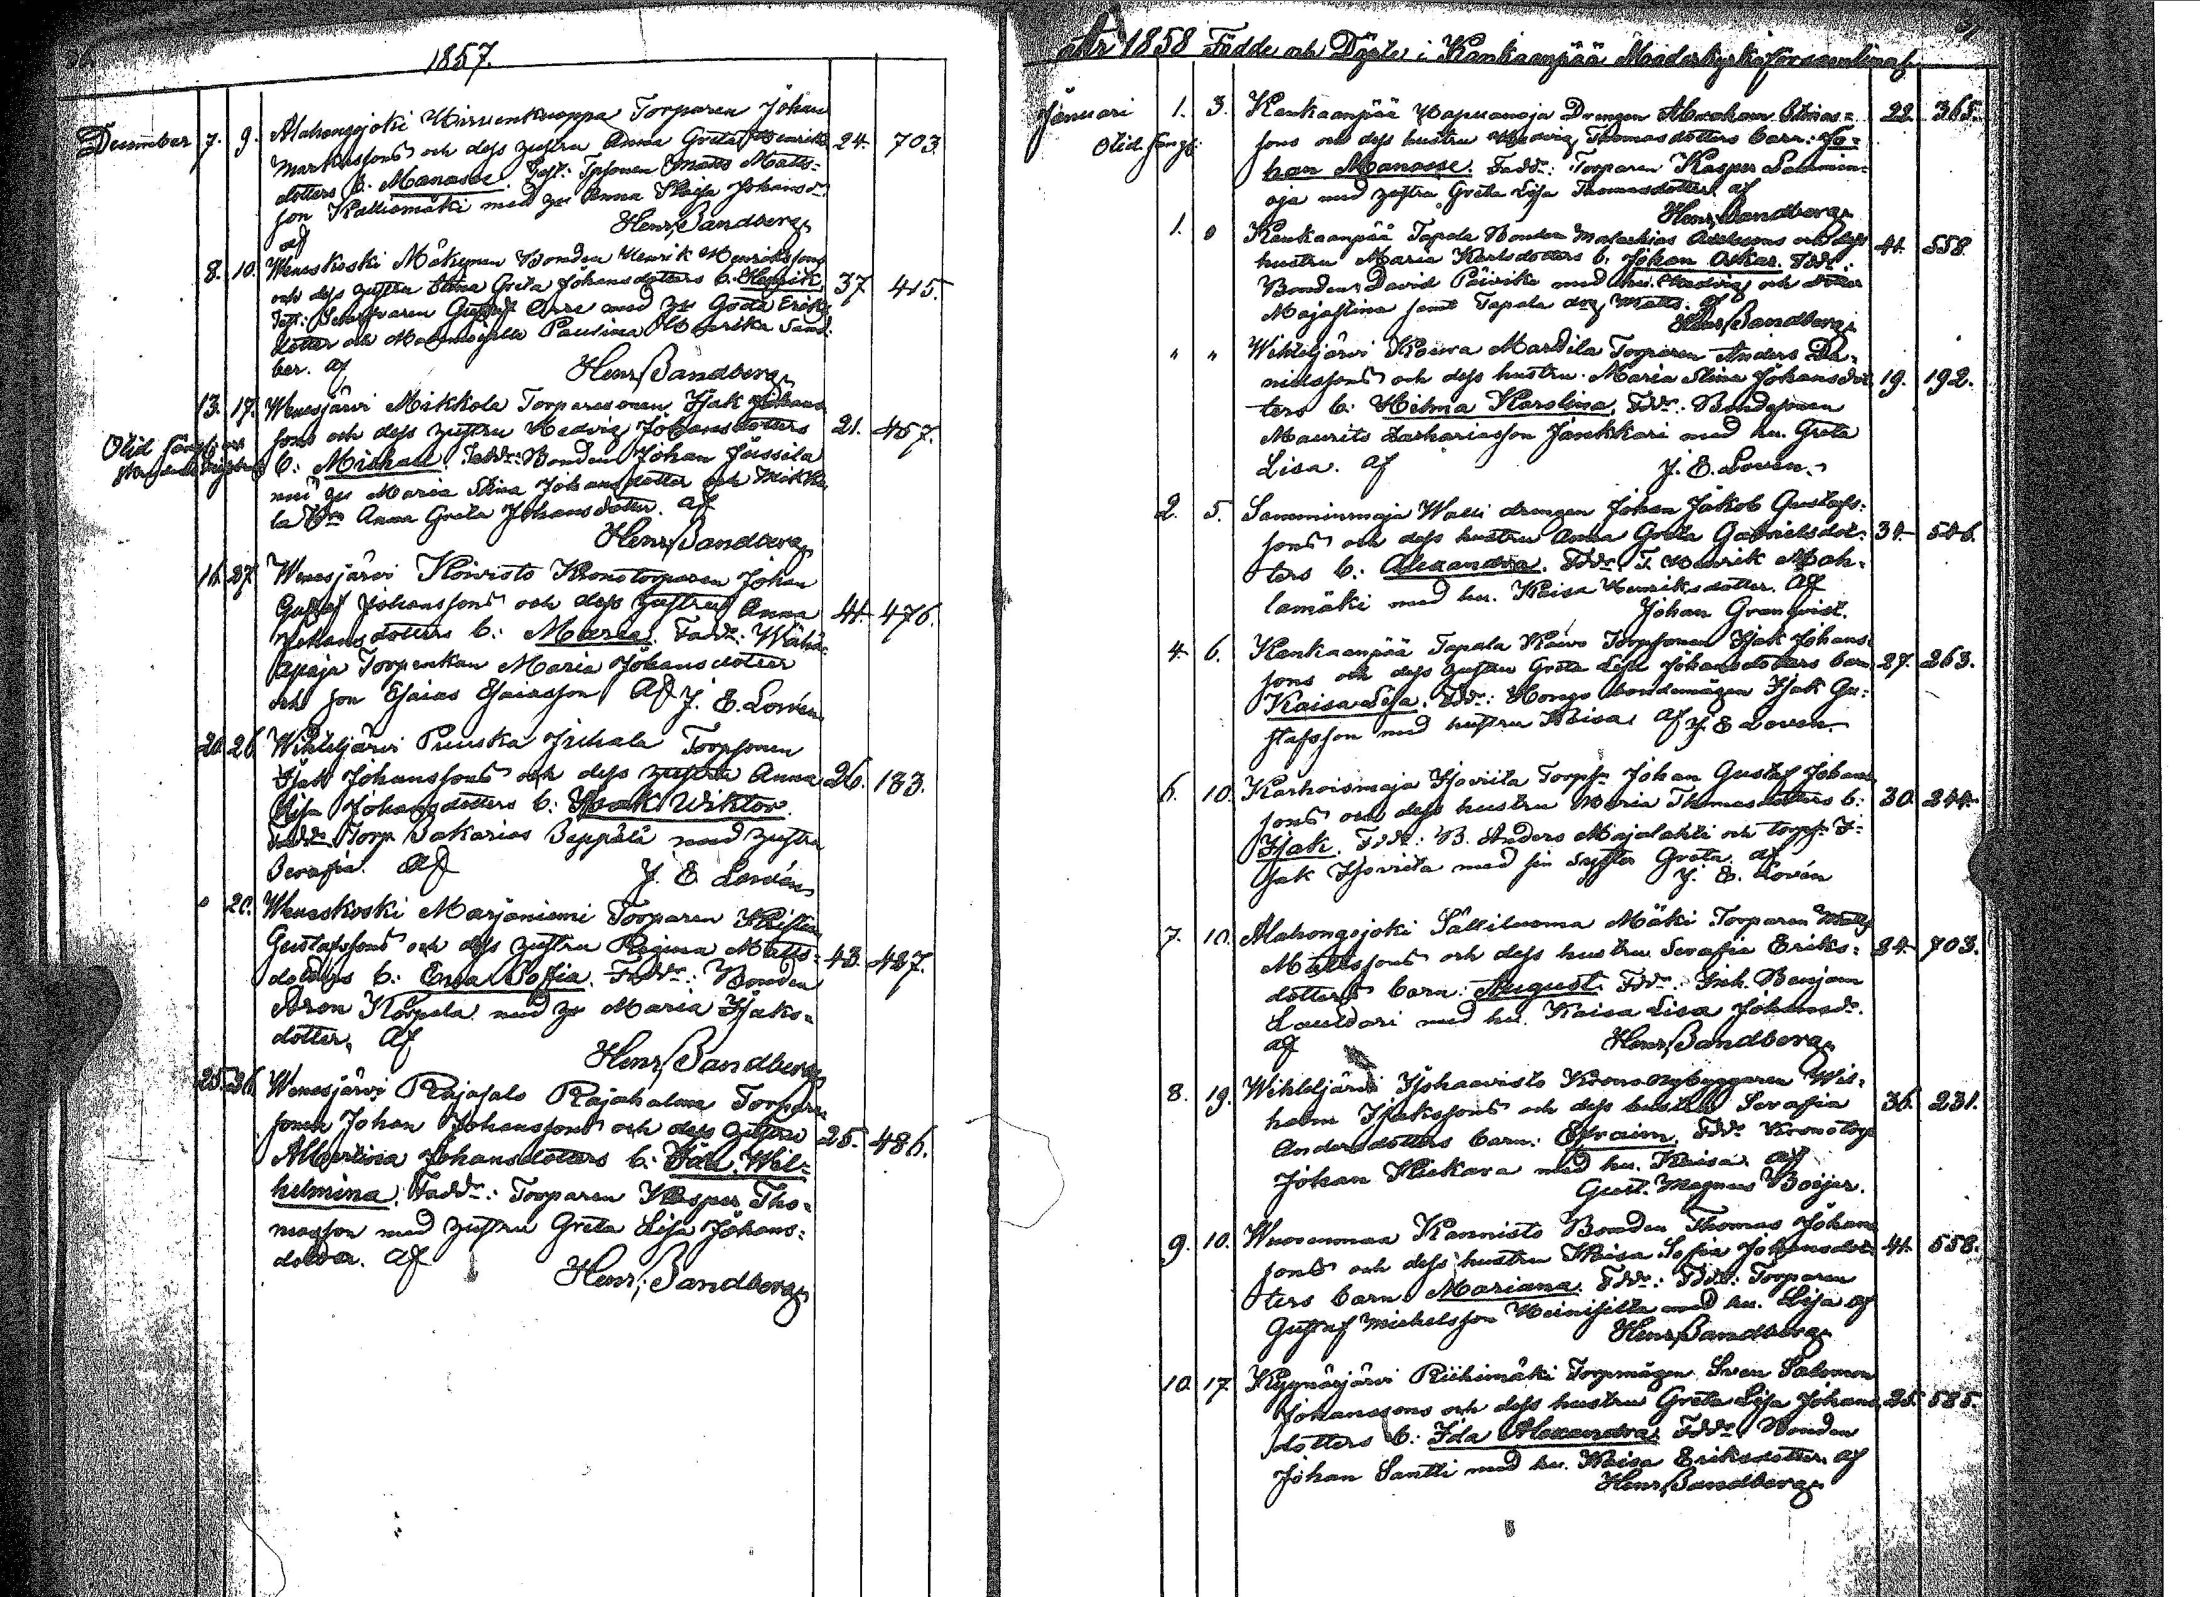 1857.
December 7. 9. Alahongojoki Hirvenkuoppa Torparen Johan
Markussons och dess hustru Anna Greta Henriks 24. 703.
dotters b. Manasse. Matts Matts-
son Kallismäki med Anna Kaisa Johansdr
af Henr. Sandberg
8. 10. Weneskoski Mäkynen Bonden Henrik Henrikssons
och dess hustru Greta Johansdotters b. Henrik 37 415.
Gustaf med Goda Eriks
dotter och Mademoiselle Paulina Ulrika Sand-
ber. af Henr. Sandberg
13. 17. Wenesjärvi Mikkola Torparesonen Isak Johans
sons och dess hustru Hedvig Johansdotters 21. 457.
Olid
b: Michael. Faddr: Bonden Johan Jussila
med Maria Stina Johansdotter och Mikko
la Anna Greta Johansdotter. af
Henr. Sandberg
16. 27. Wenesjärvi Koivisto Kronotorparen Johan
Gustaf Johanssons och dess hustru Anna 41. 476.
Johansdotters b: Maria. Faddr: Wähä-
apaja Torpenkan Maria Johansdotter
och son Esaias Esaiasson af J. E. Lovén
20. 26. Wihteljärvi Puuska Torpsonen
Isak Johanssons och dess hustru Anna 26. 183.
Lisa Johansdotters b: Isak Wiktor.
Faddr Torp. Sakarias Seppälä med hustru
Serafia. af J. E. Lovén
" 20. Weneskoski Marjaniemi Torparen Kristian
Gustafssons och dess hustru Regina Matts- 43. 427.
dotters b: Eva Sofia. Faddr: Bonden
Aron Korpela med Maria Isaks-
dotter, af
Henr. Sandberg
25. 26. Wenesjärvi Rajasalo Rajahalme Torpare
sonen Johan Johanssons och dess hustru 25. 486.
Albertina Johansdotters b: Ida Wil-
helmina. Faddr: Torparen Kasper Tho-
masson med hustru Greta Lisa Johans-
dotter. af
Henr. Sandberg
År 1858 Födde och Döpte i Kankaanpää Moderkyrkoförsamling af
Januari 1. 3. Kankaanpää Hapuanoja Drengen Abraham 22. 365.
Olid. sons och dess hustru Hedvig Thomasdotters barn: Jo-
han Manasse. Faddr: Torparen Kasper Sammin-
oja med hustru Greta Lisa Thomasdotter af
Henr. Sandberg
1. " Kankaanpää Tapala Bonden Malachias och dess 41. 558.
hustru Maria Karlsdotters b. Johan Oskar. Fddr:
Bonden David Päivike med hu. Hedvig och dotter
Majastina samt Tapala drg Matts. af
Henr. Sandberg
" " Wihteljärvi Kaura Mardila Torparen Anders Da-
nielssons och dess hustru Maria Stina Johansdot 19. 192.
ters b: Hilma Karolina, Fddr: Bondesonen
Maurits Zachariasson Jankkari med hu. Greta
Lisa. af J. E. Lovén.
2. 5. Samminmaja Walli drengen Johan Jakob Gustafs-
sons och dess hustru Anna Greta Gabrielsdot- 34. 546.
ters b: Alexandra. Fddr: T. Henrik Mah-
lamäki med hu. Kaisa Henriksdotter. af
Johan Granqvist.
4. 6. Kankaanpää Tapala Koivo Torpsonen Isak Johans
sons och dess hustru Greta Lisa Johansdotters barn 27. 263.
Kaisa Lisa. Fddr: Hongo bondemågen Isak Gu-
stafsson med hustru Kaisa af J. E. Lovén
6. 10. Karhoismaja Isoviita Torps Johan Gustaf Johans
sons och dess hustru Maria Thomasdotters b: 30. 244.
Isak. Fddr: B. Anders Majalahti och torps I-
sak Isoviita med sin syster Greta. af
J. E. Lovén
7. 10. Alahongojoki Sälliluoma Mäki Torparen Matts
Mattssons och dess hustru Serafia Eriks- 24. 703.
dotters barn: August. Fddr: Inh. Benjam
Lauldari med hu. Kaisa Lisa Johansdr.
af Henr. Sandberg
8. 19. Wihteljärvi Isohaavisto Krononybyggaren Wil-
helm Isakssons och dess hustru Serafia 36. 231.
Andersdotters barn: Efraim. Fddr Kronotorp
Johan Kiekara med hu. Kaisa. af
Gust. Magnus Boijer.
9. 10. Wuorenmaa Kannisto Bonden Thomas Johans
sons och dess hustru Kaisa Sofia Johansdot- 41. 558.
ters barn Mariana. Fddr: Fddr: Torparen
Gustaf Mickelsson Heinisilta med hu. Lisa af
Henr. Sandberg
10. 17. Kyynärjärvi Riihimäki Torpmågen Sven Salomon
Johanssons och dess hustru Greta Lisa Johans 25. 585.
dotters b: Ida Alexandra. Fddr: Bonden
Johan Santti med hu. Kaisa Eriksdotter. af
Henr. Sandberg